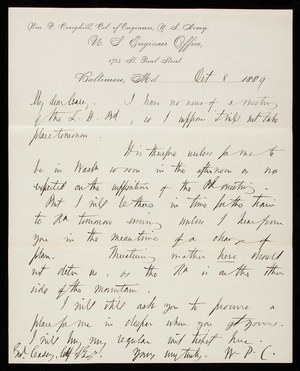 Wm P. Craighill, Col. of Engineers, U. S. Army.
U. S. Engineer Office,
1724 St. Paul Street
Baltimore, Md Oct 8 1889
My dear Casey. I have no news of a meeting
of the L. H. Bd, so I suppose I will not take
place tomorrow.
It is therefore useless for me to
be in Washn so soon in the afternoon as we
expected on the supposition of the Bd meeting.
But I will be there in time for the train
to tomorrow evening unless I hear from
you in the meantime of a change of
plan. Threatening weather here should
not deter us, as the is on the other
side of the mountain.
I will still ask you to procure a
place for me in sleeper when you get yours.
I will buy my regular ticket here.
Genl Casey, Yours very truly. W. P. C.